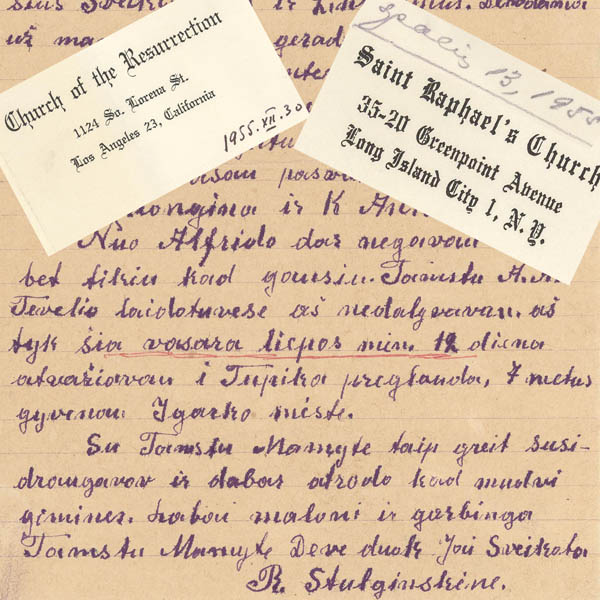 ir
už
gerad
Church of the Resurrection
1124 So. Lorena St.
Los Angeles 23, California
1955.XII.30
spalis 13, 1955
Saint Raphael's Church
35-20 Greenpoint Avenue
Long Island City 1, N.Y.
ongina ir K Ann
Nuo Alfrido dar negavau
bet tikiu kad gausiu. Tamstu
Tevelio laidotuvese aš nedalyvavau. aš
tyk šia vasara liepos mėn. 12 diena
atvažiavau i Tupika preglauda, 7 metus
gyvenau Igarko mieste.
Su Tamstu Mamyte taip greit susi-
draugavov ir dabar atrodo kad mudvi
gimines. Labai maloni ir garbinga
Tamstu Mamyte Deve duok Jai Sveikata
R. Stulginskine.